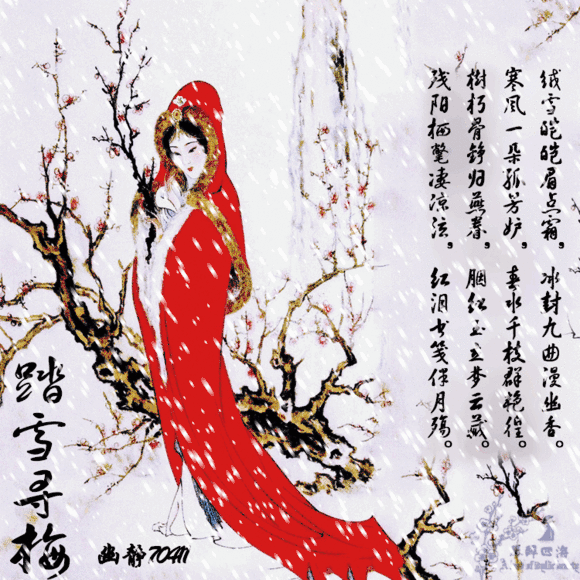 绒雪皑皑眉点霜，冰封九曲漫幽香。
寒风一朵孤芳妒，春水千枝群艳徨。
樹朽骨铮归燕，胭红玉立梦云藏。
残阳栖凄凉泫，红泪书笺伴月殇。
踏雪寻梅
幽静70411